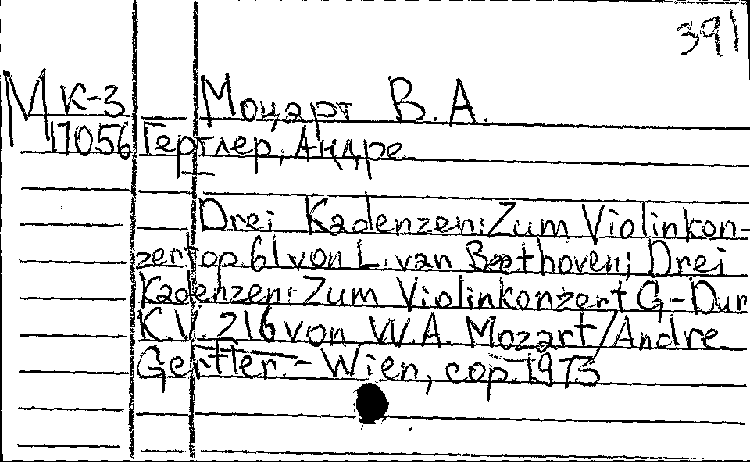 391
М К-3 Моцарт В. А.
17056 Гертлер, Андре
Drei Kadenzen: Zum Violinkon-
zert op. 61 von L. van Beethoven; Drei
Kadenzen: Zum Violinkonzert G-Dur
K.V. 216 von W.A. Mozart/Andre
Gertler. - Wien, cop. 1973